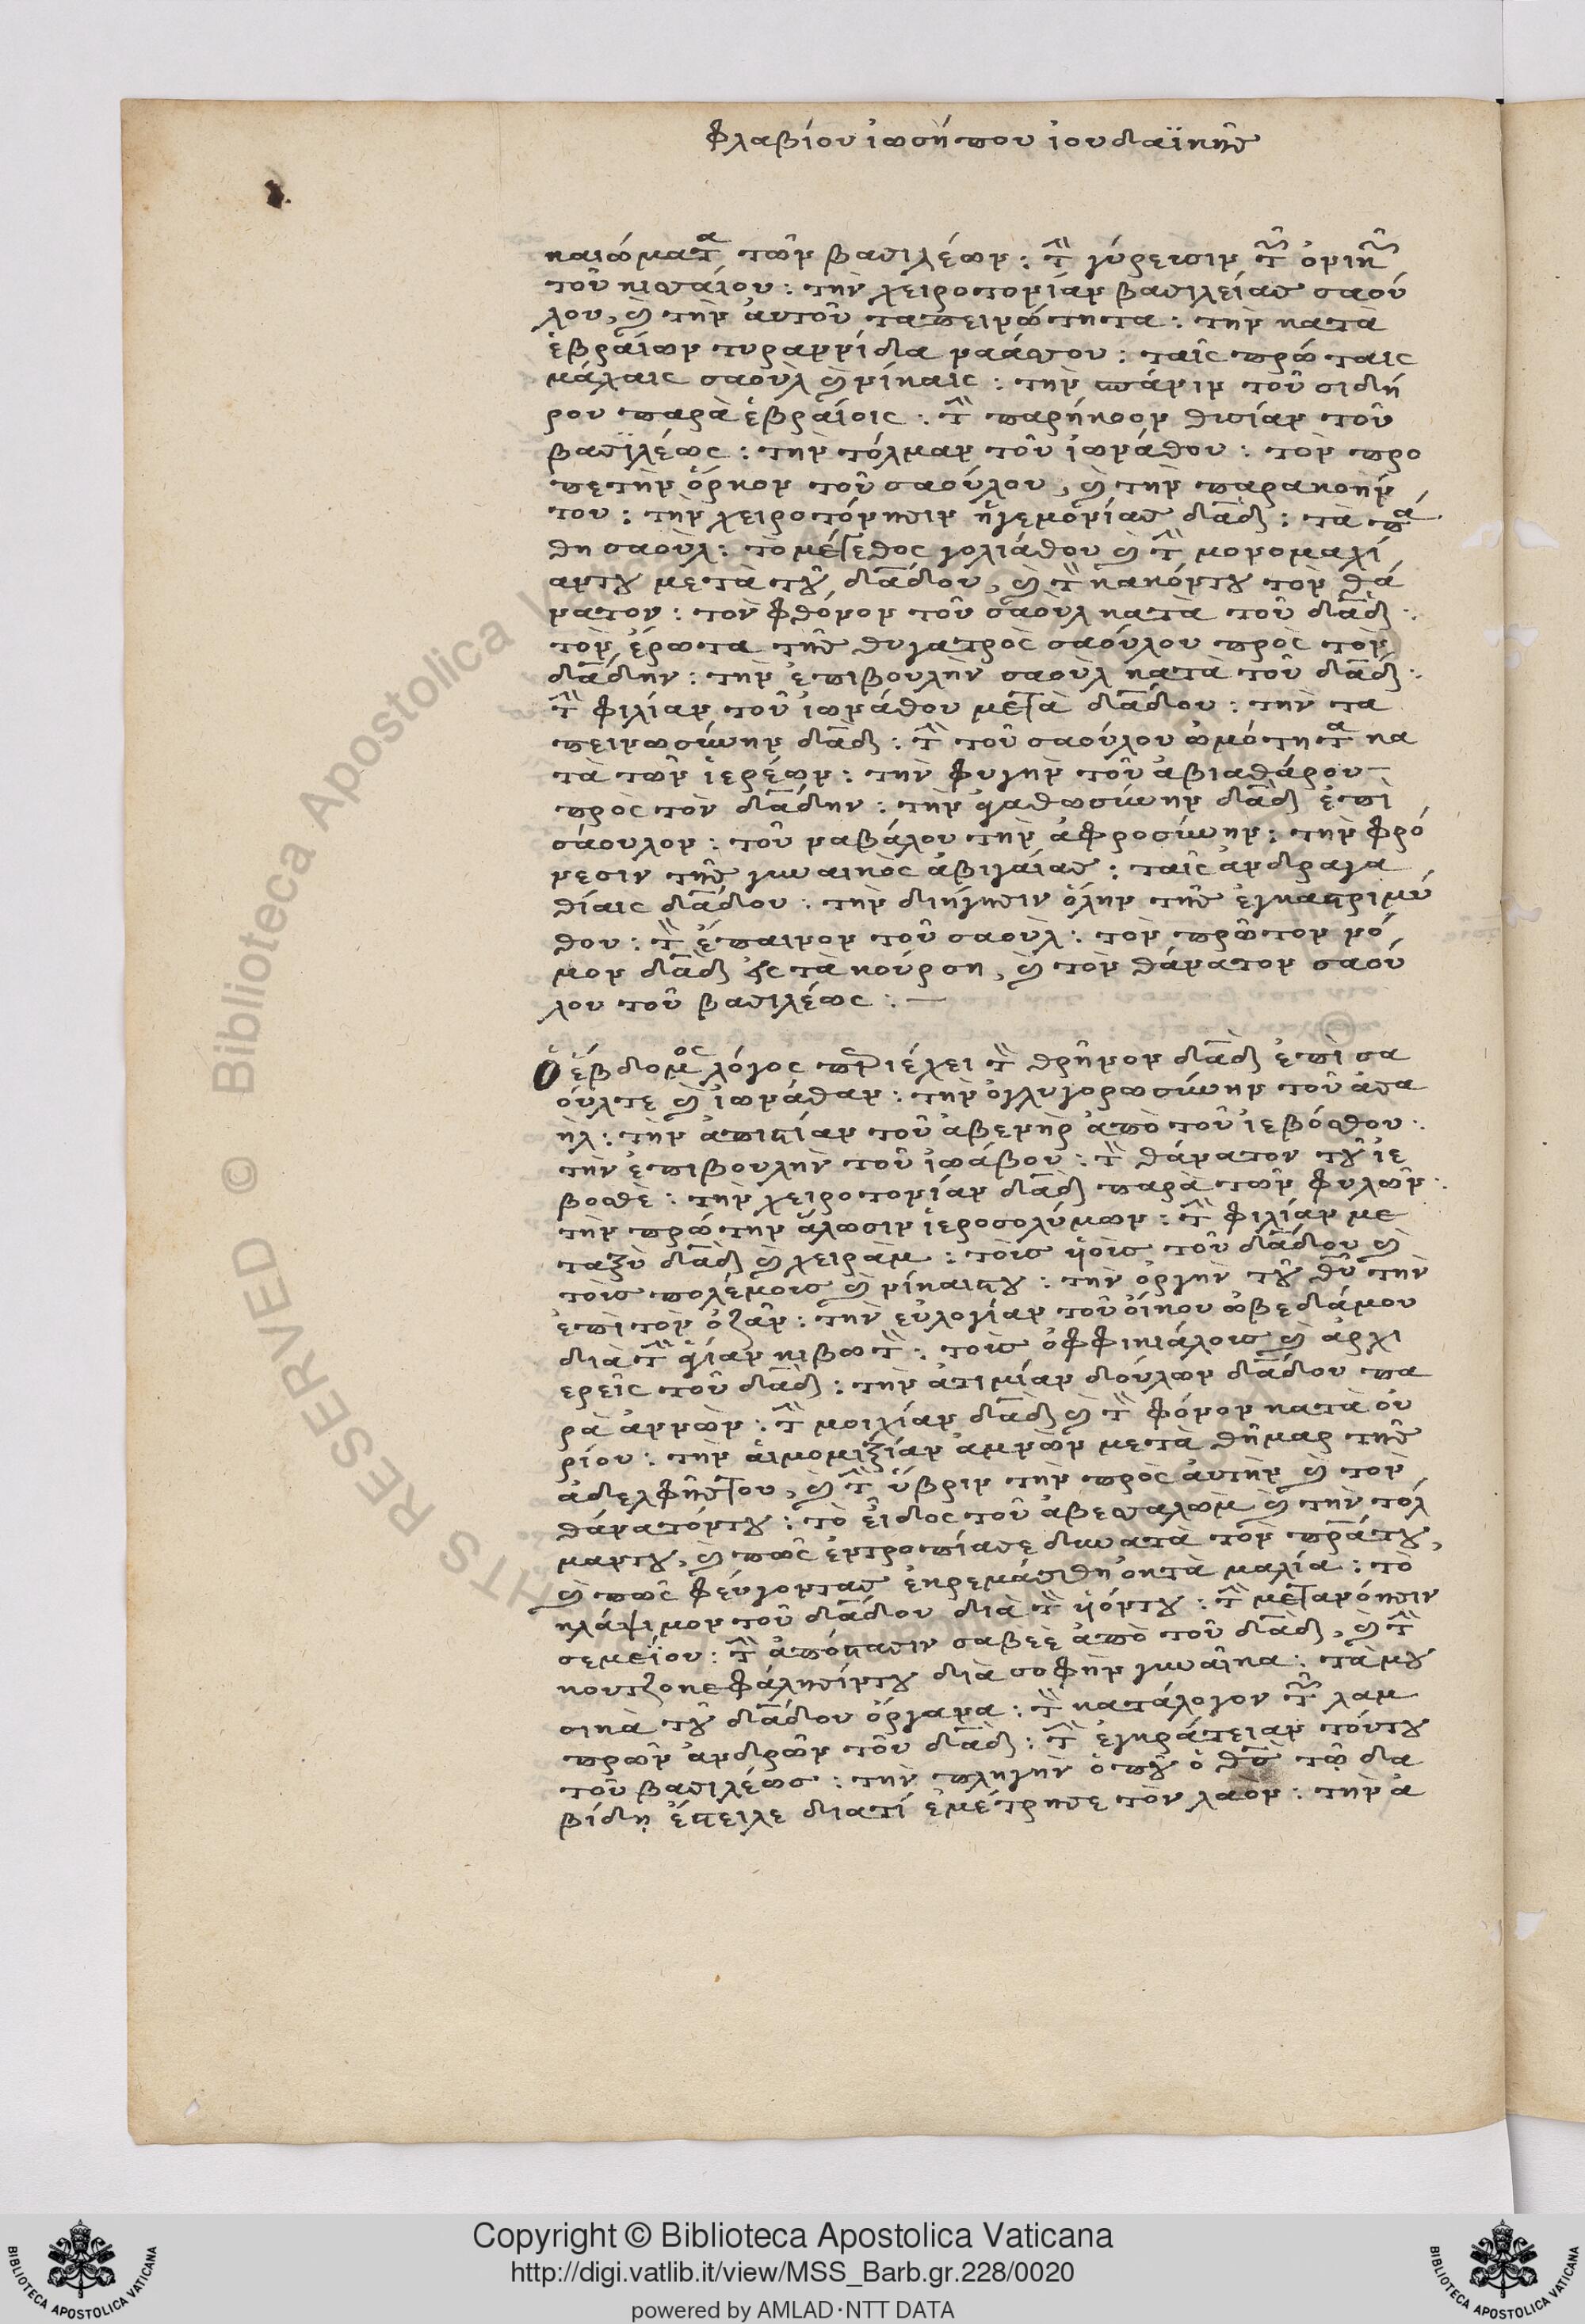 φλαβίου ἰωσήπου ἰουδαϊκῆς
καιώματα τῶν βασιλέων : τὴν γύρευσιν τῶν ὀνικῶν
τοῦ κισσαίου : τὴν χειροτονίαν βασιλείας σαού
λου, καὶ τὴν αὐτοῦ ταπεινώτητα : τὴν κατὰ
ἑβραίων τυραννίδα ναάσου : ταῖς πρώταις
μάχαις σαοὺλ καὶ νίκαις : τὴν σπάνιν τοῦ σιδή
ρου παρὰ ἑβραίοις : τὴν παρήκοον θυσίαν τοῦ
βασιλέως : τὴν τόλμαν τοῦ ἰωνάθου : τὸν προ
πετὴν ὅρκον τοῦ σαούλου, καὶ τὴν παρακοήν
του : τὴν χειροτόνησιν ἡγεμονίας δαδ : τὰ πά
θη σαοὺλ : τὸ μέγεθος γολιάθου καὶ τὴν μονομαχί
αντου μετὰ τοῦ δαδου, καὶ τὸν κακόντου τὸν θά
νατον : τὸν φθόνον τοῦ σαοὺλ κατὰ τοῦ δαδ :
τὸν ἔρωτα τῆς θυγατρὸς σαούλου πρὸς τὸν
δαδην : τὴν ἐπιβουλὴν σαοὺλ κατὰ τοῦ δαδ :
τὴν φιλίαν τοῦ ἰωνάθου μετὰ δαδου : τὴν τα
πεινωσύνην δαδ : τὴν τοῦ σαούλου ὠμότητα κα
τὰ τῶν ἱερέων : τὴν φυγὴν τοῦ ἀβιαθάρου
πρὸς τὸν δαδην : τὴν ἀγαθωσύνην δαδ ἐπὶ
σάουλον : τοῦ ναβάλου τὴν ἀφροσύνην : τὴν φρό
νεσιν τῆς γυναικὸς ἀβιγαίας : ταῖς ἀνδραγα
θίαις δαδου : τὴν διήγησιν ὅλην τῆς ἐγκαστριμύ
θου : τὸν ἔπαινον τοῦ σαοὺλ : τὸν πρῶτον νό
μον δαδ εἰς τὰ κούρση, καὶ τὸν θάνατον σαού
λου τοῦ βασιλέως : —
Ὁ ἕβδομος λόγος περιέχει τὸν θρῆνον δαδ ἐπὶ σα
ούλτε καὶ ἰωνάθαν : τὴν ὀγλυγορωσύνην τοῦ ἀσα
ὴλ : τὴν ἀπιστίαν τοῦ ἀβενὴρ ἀπὸ τοῦ ἰεβόσθου :
τὴν ἐπιβουλὴν τοῦ ἰωάβου : τὸν θάνατον τοῦ ἰε
βοσθὲ : τὴν χειροτονίαν δαδ παρὰ τῶν φυλῶν :
τὴν πρώτην ἅλωσιν ἱεροσολύμων : τὴν φιλίαν με
ταξὺ δαδ καὶ χειρὰμ : τοὶς υἱοὶς τοῦ δαδου καὶ
τοὶς πολέμοις καὶ νίκαιστου : τὴν ὀργὴν τοῦ θῦ τὴν
ἐπὶ τὸν ὀζᾶν : τὴν εὐλογίαν τοῦ οἴκου ὠβεδάμου
διὰ τὴν ἁγίαν κιβωτὸν : τοὶς ὀφφικιάλοις καὶ ἀρχι
ερεῖς τοῦ δαδ : τὴν ἀτιμίαν δούλων δαδου πα
ρὰ ἀννὼν : τὴν μοιχίαν δαδ καὶ τὸν φόνον κατὰ οὐ
ρίου : τὴν αἱμομιξίαν ἀμνὼν μετὰ θῆμαρ τῆς
ἀδελφῆςτου, καὶ τὴν ὕβριν τὴν πρὸς αὐτὴν καὶ τὸν
θάνατόντου : τὸ εἶδος τοῦ ἀβεσαλὼμ καὶ τὴν τόλ
μαντου, καὶ πῶς ἐντροπίασε δυνατὰ τὸν πρατου,
καὶ πῶς φεύγοντας ἐκρεμάσθη ὀκτὰ μαλία : τὸ
κλάψιμον τοῦ δαδου διὰ τὸν υἱόντου : τὴν μετανόησιν
σεμείου : τὴν ἀπόστασιν σαβεὲ ἀπὸ τοῦ δαδ, καὶ τὴν
κουτζοκεφάλησίντου διὰ σοφὴν γυναῖκα : τὰ μου
σικὰ τοῦ δαδου ὄργανα : τὸν κατάλογον τῶν λαμ
πρῶν ἀνδρῶν τοῦ δαδ : τὴν ἐγκράτειαν τούτου
τοῦ βασιλέως : τὴν πληγὴν ὁποῦ ὁ θς τῷ δα
βίδῃ ἔστειλε διατί ἐμέτρησε τὸν λαὸν : τὴν ἀ
Copyright © Biblioteca Apostolica Vaticana
http://digi.vatlib.it/view/MSS_Barb.gr.228/0020
powered by AMLAD·NTT DATA
BIBLIOTECA APOSTOLICA VATICANA
BIBLIOTECA APOSTOLICA VATICANA